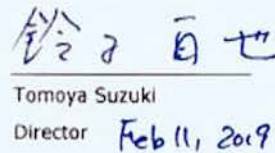 鈴
Tomoya Suzuki
Director Feb 11, 2019